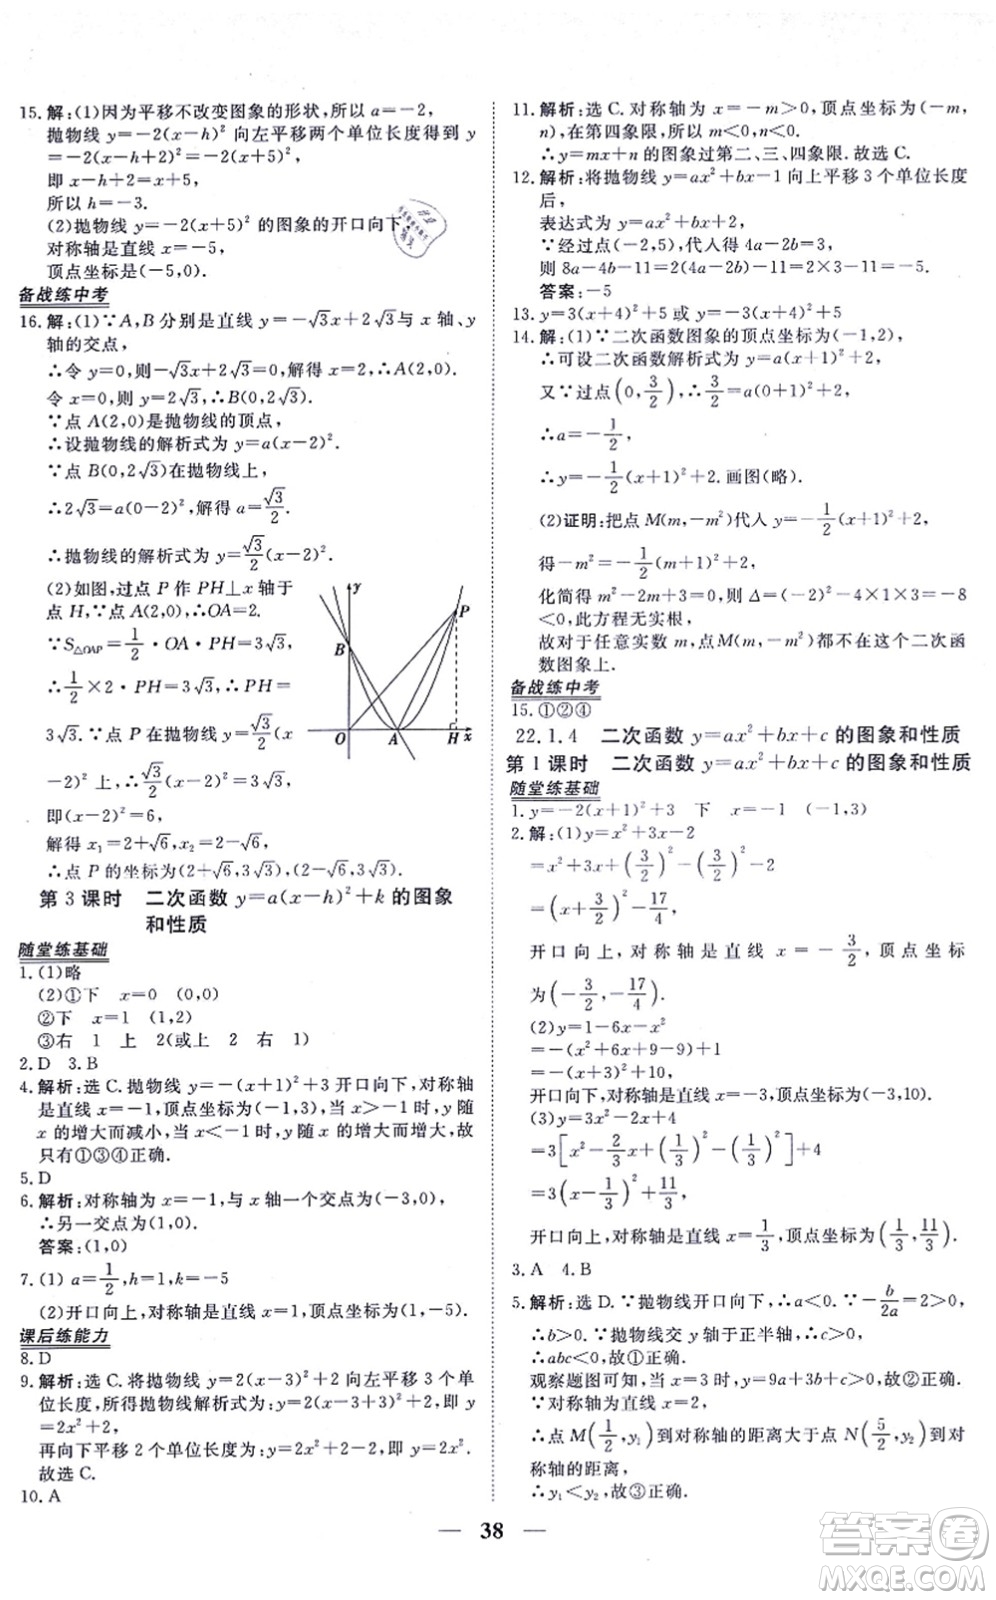 15. 解:(1)因为平移不改变图象的形状,所以 a=-2,
抛物线 y=-2(x-h)²向左平移两个单位长度得 y
=-2(x-h+2)²=-2(x+5)²,
即-h+2=5,
所以 h=-3.
(2)抛物线 y=-2(x+5)²的图象的开口向下,
对称轴是直线 x=-5,
顶点坐标是(-5,0).
备战练中考
16. 解:(1)∵A,B 分别是直线 y=-√3x+2√3与 x 轴、y
轴的交点,
∴令 y=0,则-√3x+2√3=0,解得 x=2.∴A(2,0).
令 x=0,则 y=2√3,∴B(0,2√3).
∵点 A(2,0)是抛物线的顶点,
∴设抛物线的解析式为 y=a(x-2)².
∵点 B(0,2√3)在抛物线上,
∴2√3=a(0-2)²,解得 a=√3/2.
∴抛物线的解析式为 y=√3/2(x-2)².
(2)如图,过点 P 作 PH⊥x 轴于
点 H,∵点 A(2,0).∴OA=2.
∵S△OAP=1/2·OA·PH=3√3,
∴1/2×2·PH=3√3,∴PH=
3√3.∵点 P 在抛物线 y=√3/2(x
-2)²上,∴√3/2(x-2)²=3√3,
即(x-2)²=6,
解得 x₁=2+√6,x₂=2-√6,
∴点 P 的坐标为(2+√6,3√3),(2-√6,3√3).
y
P
B
O
A
H
x
第 3 课时 二次函数 y=a(x-h)²+k 的图象
和性质
随堂练基础
1. (1)略
(2)①下 x=0 (0,0)
②下 x=1 (1,2)
③右 1 上 2(或上 2 右 1)
2. D 3. B
4. 解析:选 C.抛物线 y=-(x+1)²+3 开口向下,对称轴
是直线 x=-1,顶点坐标为(-1,3),当 x>-1 时,y 随
x 的增大而减小,当 x<-1 时,y 随 x 的增大而增大,故
只有①③④正确.
5. D
6. 解析:对称轴为 x=-1,与 x 轴一个交点为(-3,0),
∴另一交点为(1,0).
答案:(1,0)
7. (1) a=1/2,h=1,k=-5
(2)开口向上,对称轴是直线 x=1,顶点坐标为(1,-5).
课后练能力
8. D
9. 解析:选 C.将抛物线 y=2(x-3)²+2 向左平移 3 个单
位长度,所得抛物线解析式为 y=2(x-3+3)²+2,即
y=2x²+2,
再向下平移 2 个单位长度为:y=2x²+2-2,即 y=2x².
故选 C.
10. A
11. 解析:选 C.对称轴为 x=-m>0,顶点坐标为(-m,
n),在第四象限,所以 m<0,n<0.
∴y=mx+n 的图象过第二、三、四象限.故选 C.
12. 解析:将抛物线 y=ax²+bx-1 向上平移 3 个单位长度
后,
表达式为 y=ax²+bx+2,
∵经过点(-2,5),代入得 4a-2b=3,
则 8a-4b-11=2(4a-2b)-11=2×3-11=-5.
答案:-5
13. y=3(x+4)²+5 或 y=3(x-4)²+5
14. 解:(1)∵二次函数图象的顶点坐标为(-1,2),
∴可设二次函数解析式为 y=a(x+1)²+2.
又∵过点(0,3/2),∴3/2=a(0+1)²+2.
∴a=-1/2,
∴y=-1/2(x+1)²+2.画图(略).
(2)证明:把点 M(m,-m²)代入 y=-1/2(x+1)²+2,
得-m²=-1/2(m+1)²+2,
化简得 m²-2m+3=0,则 Δ=(-2)²-4×1×3=-8
<0,此方程无实根.
故对于任意实数 m,点M(m,-m²)都不在这个二次函
数图象上.
备战练中考
15. ①②④
22.1.4 二次函数 y=ax²+bx+c 的图象和性质
第 1 课时 二次函数 y=ax²+bx+c 的图象和性质
随堂练基础
1. y=-2(x+1)²+3 下 x=-1 (-1,3)
2. 解:(1)y=x²+3x-2
=x²+3x+(3/2)²-(3/2)²-2
=(x+3/2)²-17/4,
开口向上,对称轴是直线 x=-3/2,顶点坐标
为(-3/2,-17/4).
(2)y=1-6x-x²
=-(x²+6x+9-9)+1
=-(x+3)²+10,
开口向下,对称轴是直线 x=-3,顶点坐标为(-3,10).
(3)y=3x²-2x+4
=3[x²-2/3x+(1/3)²-(1/3)²]+4
=3(x-1/3)²+11/3,
开口向上,对称轴是直线 x=1/3,顶点坐标为(1/3,11/3).
3. A 4. B
5. 解析:选 D.∵抛物线开口向下,∴a<0.∵-b/2a=2>0,
∴b>0.∵抛物线交 y轴于正半轴,∴c>0.
∴abc<0,故①正确.
观察题图可知,当 x=3 时,y=9a+3b+c>0,故②正确.
∵对称轴为直线 x=2,
∴点 M(1/2,y₁)到对称轴的距离大于点 N(5/2,y₂)到对
称轴的距离,
∴y₁<y₂,故③正确.
38
答案圈
MXQE.COM